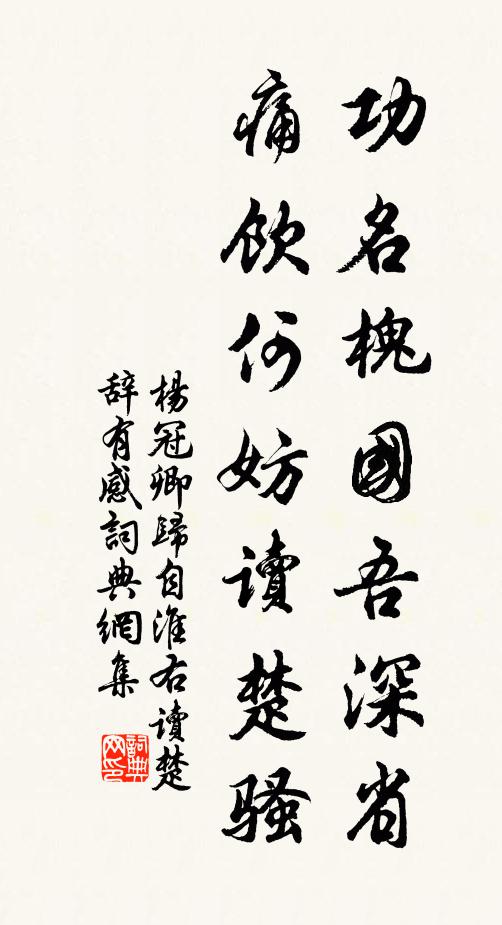 功名槐國吾深省
痛飲何妨讀楚騷
楊冠卿歸自淮右讀楚
辞有感詞典網集
詞典网印